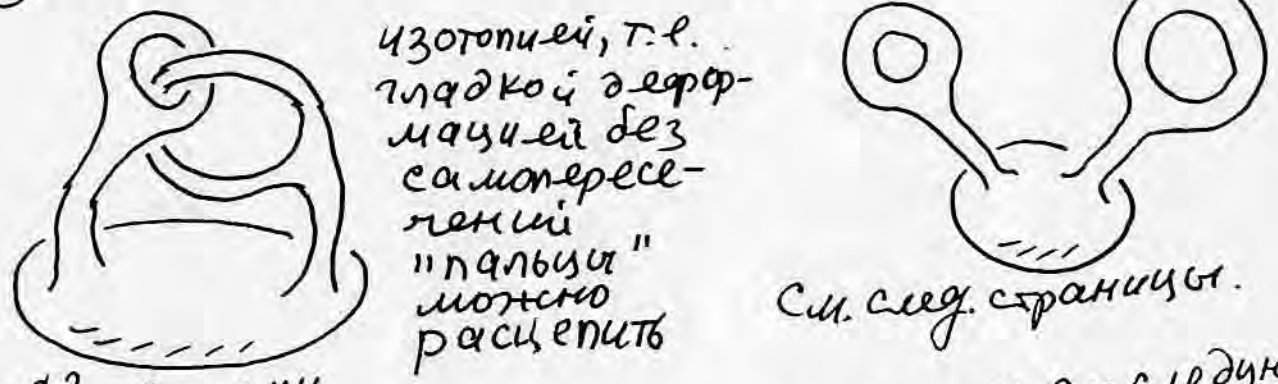 изотопией, т.е.
гладкой дефор-
мацией без
самопересе-
чений
"пальцы"
можно
расцепить
См. след. страницы.